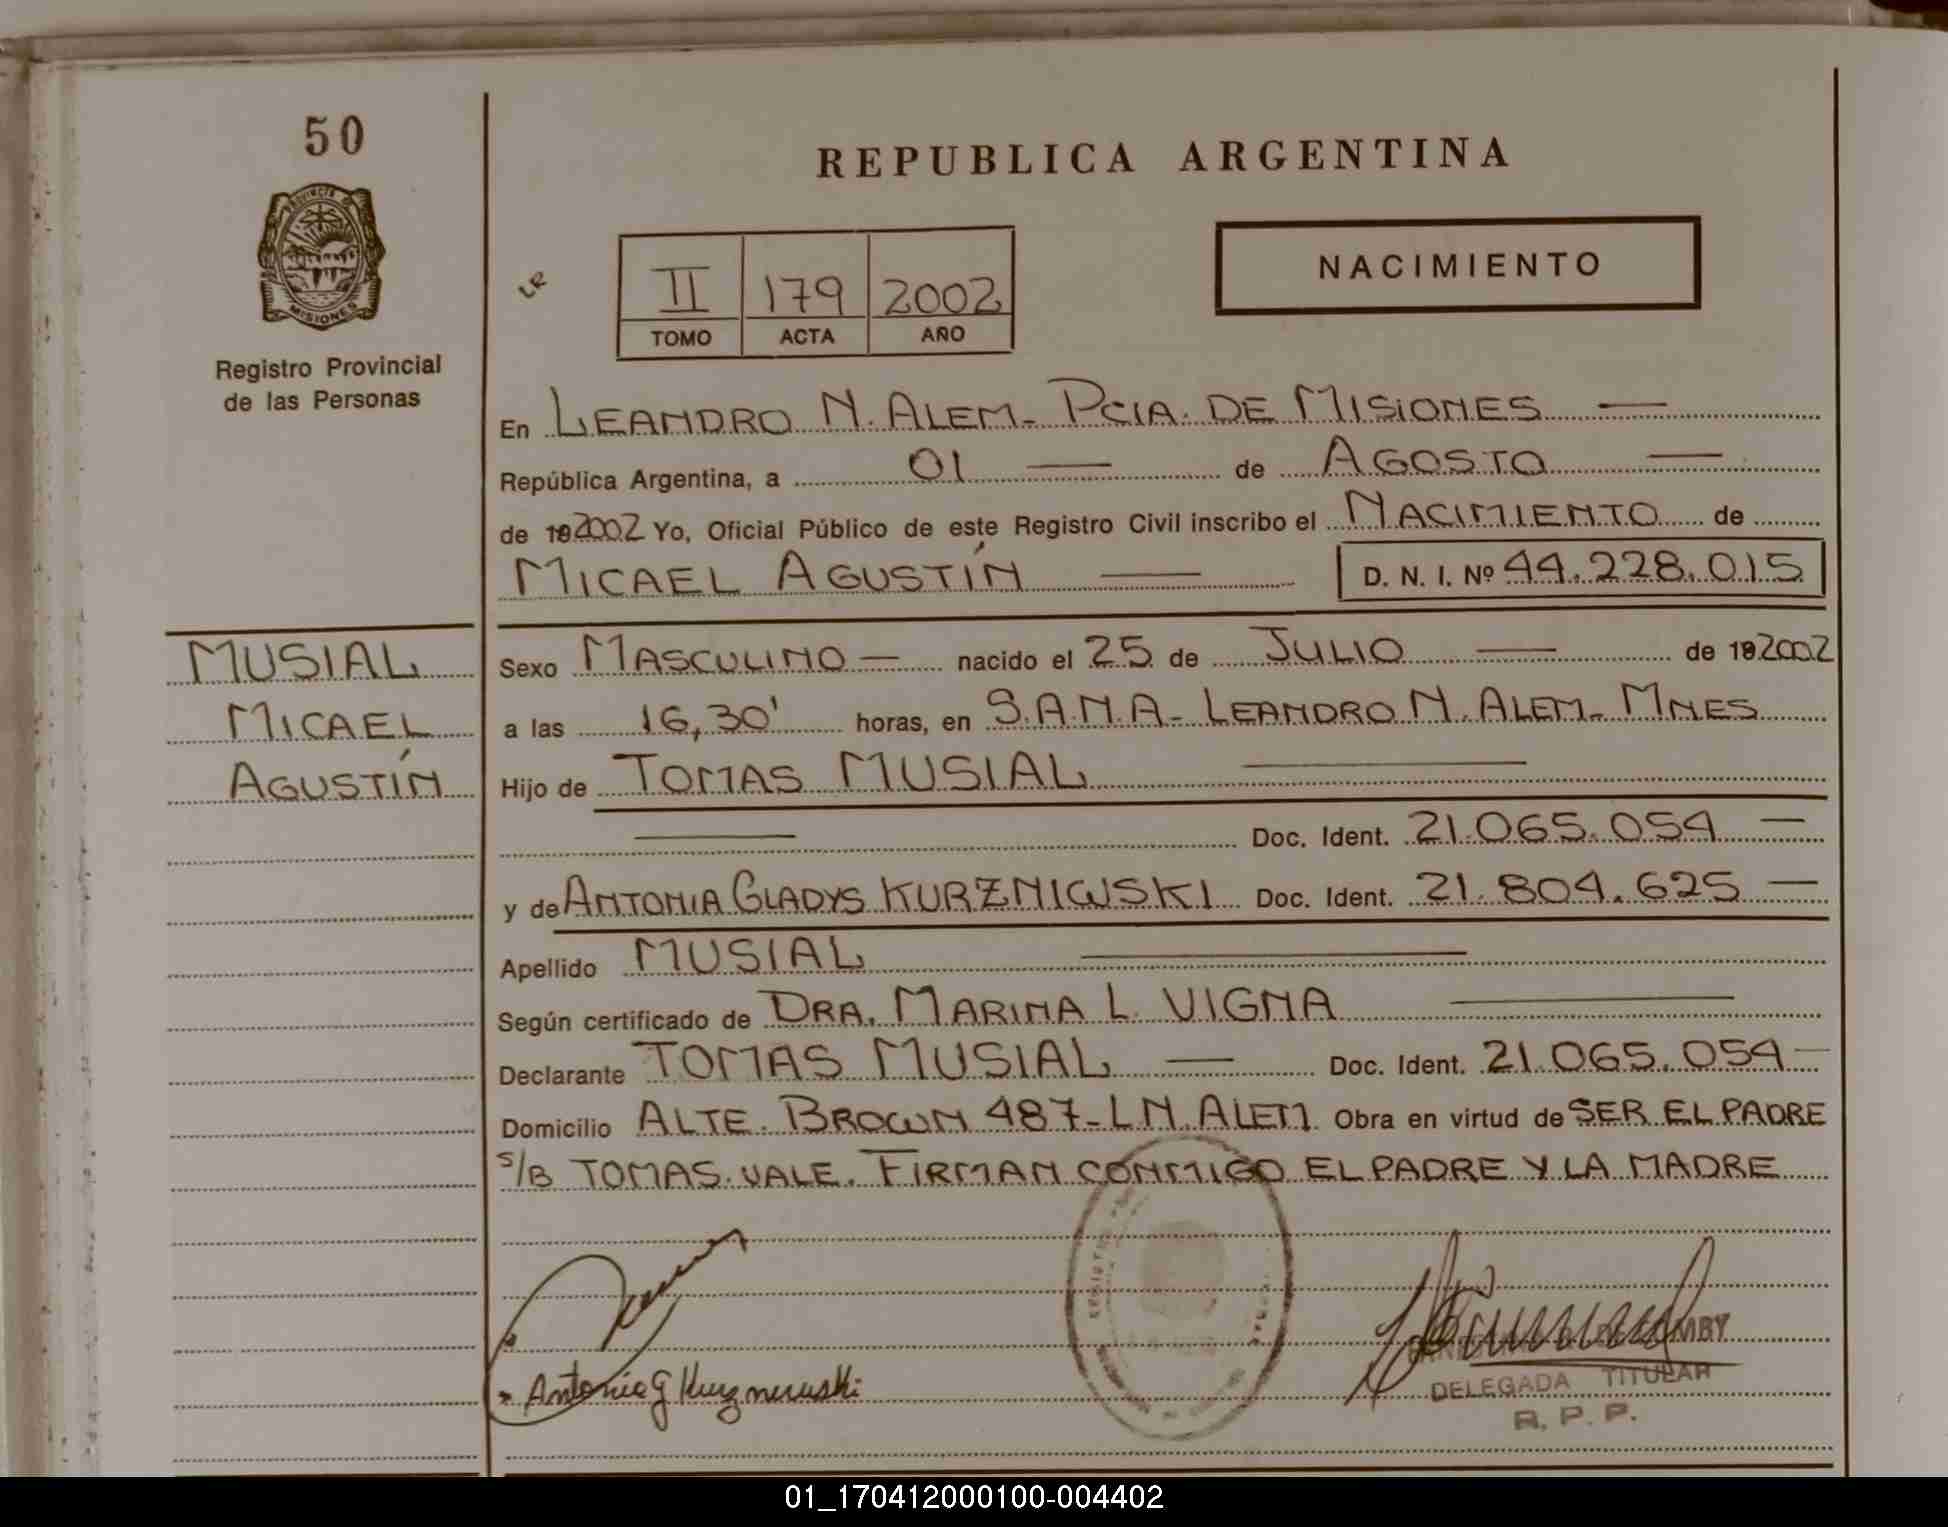 50
PROVINCIA DE
MISIONES
Registro Provincial
de las Personas
REPUBLICA ARGENTINA
LR
II 179 2002
TOMO ACTA AÑO
NACIMIENTO
En LEANDRO N. ALEM - PCIA. DE MISIONES —
República Argentina, a 01 — de AGOSTO —
de 192002 Yo, Oficial Público de este Registro Civil inscribo el NACIMIENTO de
MICAEL AGUSTÍN — D. N. I. Nº 44.228.015
MUSIAL
MICAEL
AGUSTÍN
Sexo MASCULINO — nacido el 25 de JULIO — de 192002
a las 16,30' horas, en S.A.N.A - LEANDRO N. ALEM - MNES
Hijo de TOMAS MUSIAL —
— Doc. Ident. 21.065.054 —
y de ANTONIA GLADYS KURZNIWSKI Doc. Ident. 21.804.625 —
Apellido MUSIAL —
Según certificado de DRA. MARINA L. VIGNA —
Declarante TOMAS MUSIAL — Doc. Ident. 21.065.054 —
Domicilio ALTE. BROWN 487 - L N. ALEM Obra en virtud de SER EL PADRE
S/B TOMAS. VALE. FIRMAN CONMIGO EL PADRE Y LA MADRE
Antonia G
DELEGADA TITULAR
R. P. P.
01_170412000100-004402